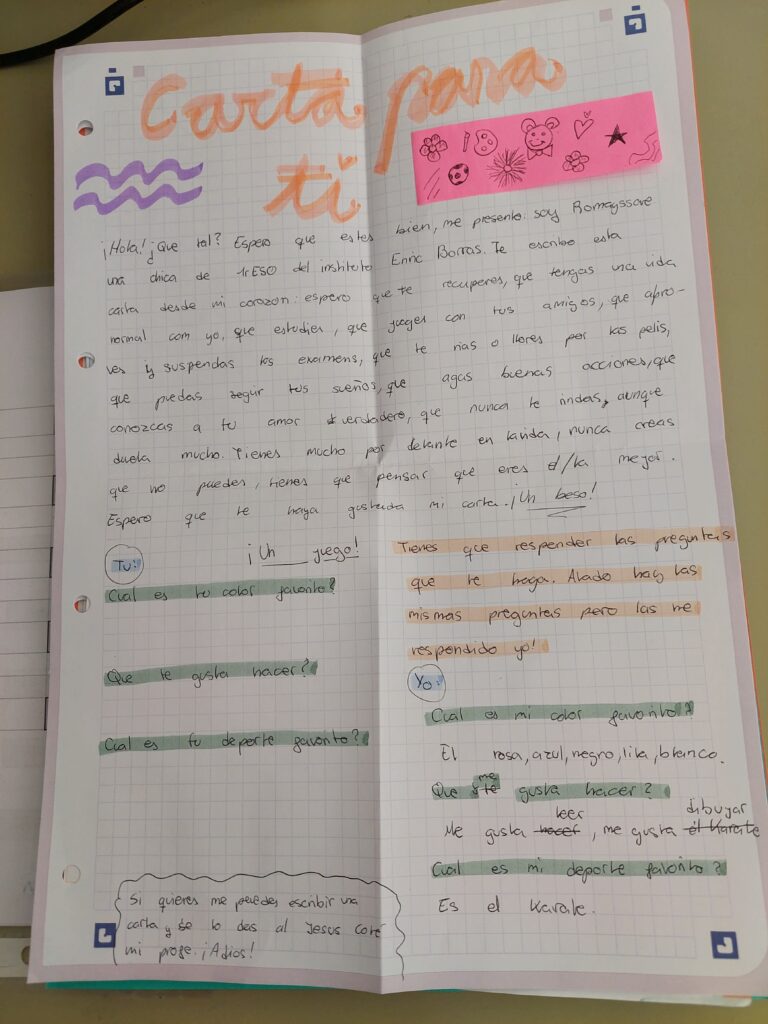 Carta para
ti
¡Hola! ¿Que tal? Espero que estes bien, me presento: soy Romayssae
una chica de 1rESO del instituto Enric Borras. Te escribo esta
carta desde mi corazon: espero que te recuperes, que tengas una vida
normal com yo, que estudies, que jueges con tus amigos, que apro-
ves y suspendas los examens, que te rias o llores por las pelis,
que puedas segir tus sueños, que agas buenas acciones, que
conozcas a tu amor verdadero, que nunca te rindas, aunque
duela mucho. Tienes mucho por delante en la vida, nunca creas
que no puedes, tienes que pensar que eres el/la mejor.
Espero que te haya gustada mi carta. ¡Un beso!
¡Un juego!
Tu:
Cual es tu color favorito?
Que te gusta hacer?
Cual es tu deporte favorito?
Si quieres me puedes escribir una
carta y se lo das al Jesus coté
mi profe. ¡Adios!
Tienes que responder las preguntas
que te haga. Alado hay las
mismas preguntas pero las he
respondido yo!
Yo:
Cual es mi color favorito?
El rosa, azul, negro, lila, blanco.
Que me gusta hacer?
Me gusta leer, me gusta dibuyar
Cual es mi deporte favorito?
Es el Karate.